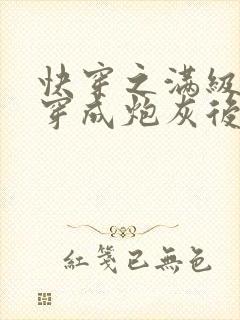 快穿之滿級
穿成炮灰後
紅箋已無色